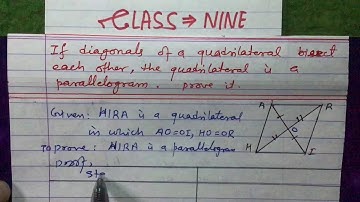 CLASS ⇒ NINE
If diagonals of a quadrilateral bisect
each other, the quadrilateral is a
parallelogram. prove it.
Given: HIRA is a quadrilateral
in which AO=OI, HO=OR
To prove: HIRA is a parallelogram
proof.
Ste
A
R
O
H
I